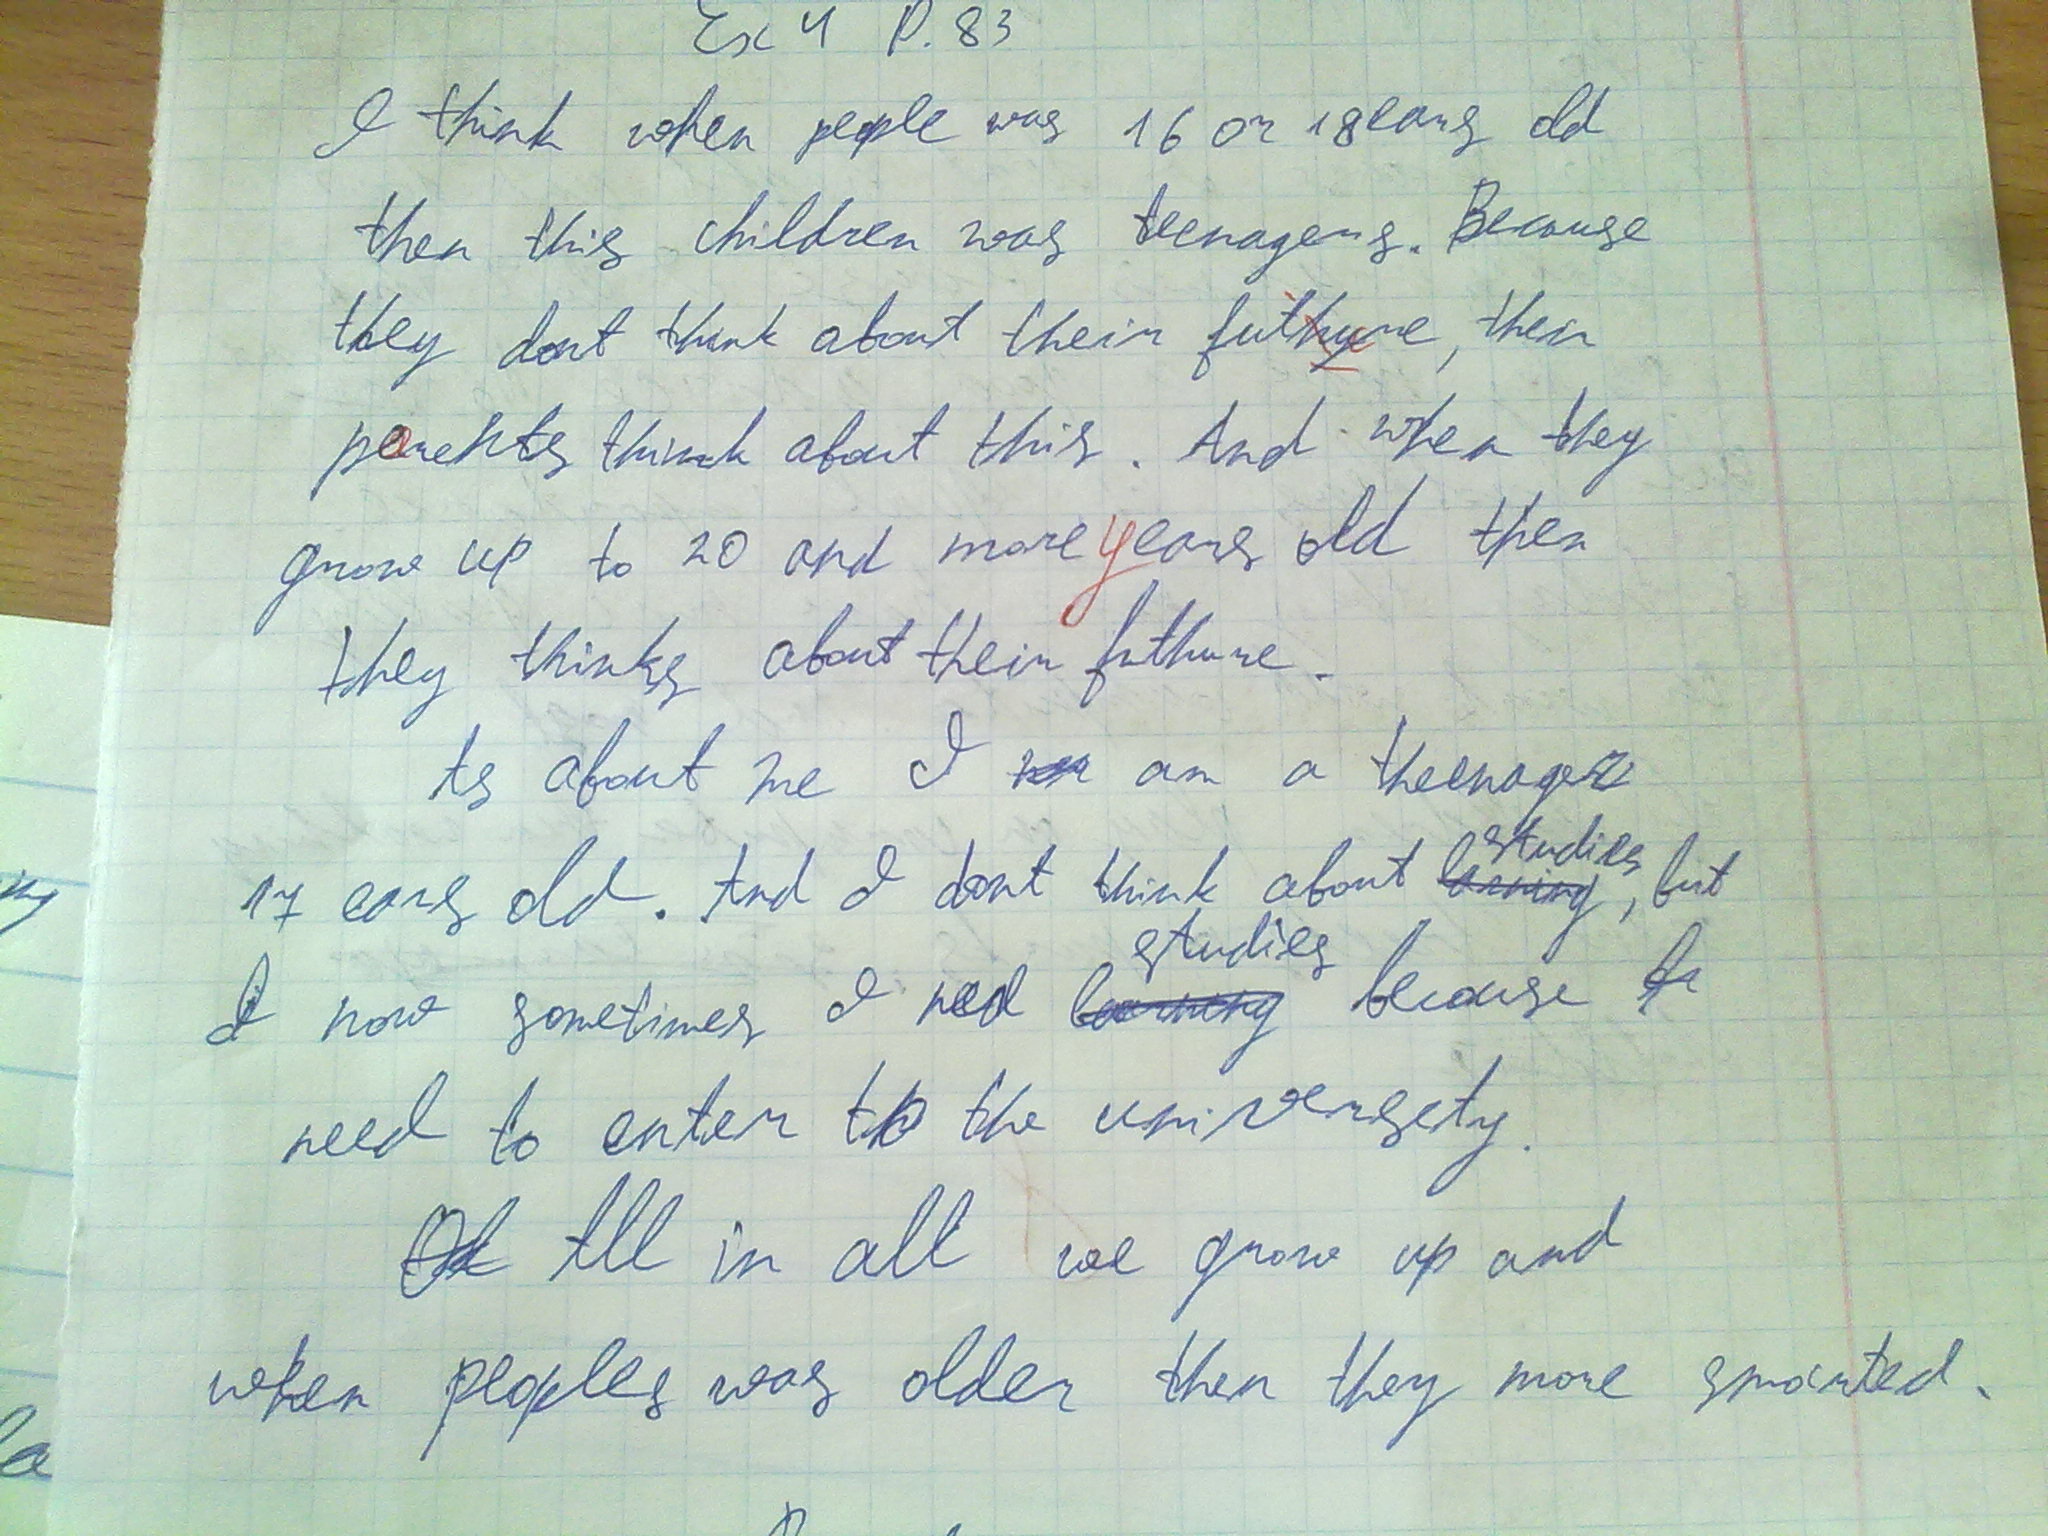 Ex 4 P. 83
I think when people was 16 or 18 ears old
then this children was teenagers. Because
they dont think about their futhure, their
parents think about this. And when they
grow up to 20 and more years old then
they thinks about their futhure.
As about me I am a theenager
17 ears old. And I dont think about studies, but
I now sometimes I need studies because I
need to enter to the universety.
All in all we grow up and
when peoples was older then they more smarted.